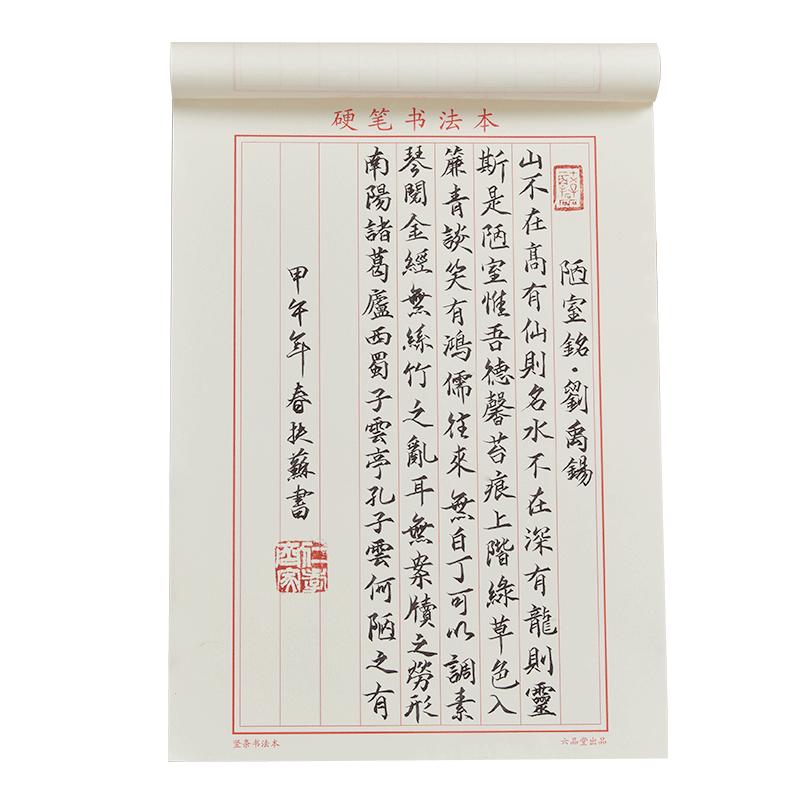 硬笔书法本
陋室銘·劉禹錫
山不在髙有仙則名水不在深有龍則靈
斯是陋室惟吾德馨苔痕上階綠草色入
簾青談笑有鴻儒往來無白丁可以調素
琴閱金經無絲竹之亂耳無案牘之勞形
南陽諸葛廬西蜀子雲亭孔子雲何陋之有
甲午年春扶蘇書
竖条书法本
六品堂出品